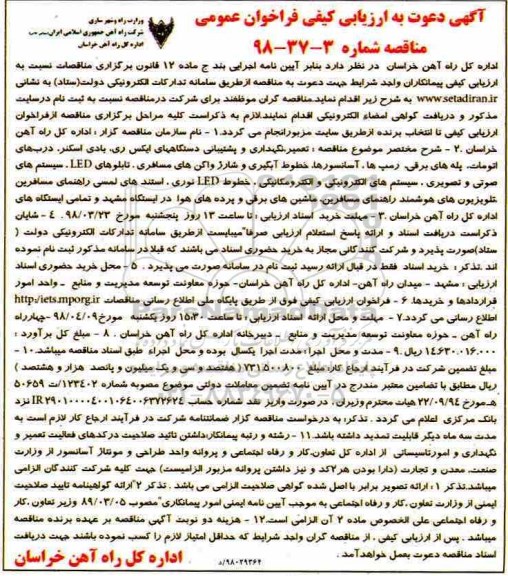 آگهی دعوت به ارزیابی کیفی فراخوان عمومی
مناقصه شماره ۳-۳۷-۹۸
وزارت راه و شهر سازی
شرکت راه آهن جمهوری اسلامی ایران
اداره کل راه آهن خراسان
اداره کل راه آهن خراسان در نظر دارد بنابر آیین نامه اجرایی بند ج ماده ۱۲ قانون برگزاری مناقصات نسبت به
ارزیابی کیفی پیمانکاران واجد شرایط جهت دعوت به مناقصه ازطریق سامانه تدارکات الکترونیکی دولت(ستاد) به نشانی
www.setadiran.ir به شرح زیر اقدام نماید.مناقصه گران موظفند برای شرکت درمناقصه نسبت به ثبت نام درسایت
مذکور و دریافت گواهی امضاء الکترونیکی اقدام نمایند.لازم به ذکراست کلیه مراحل برگزاری مناقصه ازفراخوان
ارزیابی کیفی تا انتخاب برنده ازطریق سایت مزبورانجام می گردد.۱- نام سازمان مناقصه گزار : اداره کل راه آهن
خراسان .۲- شرح مختصر موضوع مناقصه : تعمیر،نگهداری و پشتیبانی دستگاههای ایکس ری، بادی اسکنر، درب‌های
اتومات، پله های برقی، رمپ ها ، آسانسورها، خطوط آبگیری و شارژ واگن های مسافری ، تابلوهای LED ، سیستم های
صوتی و تصویری ، سیستم های الکترونیکی و الکترومکانیکی ، خطوط LED نوری ، استند های لمسی راهنمای مسافرین
،تلویزیون های هوشمند راهنمای مسافرین ،ماشین های برقی و پرده های هوا در ایستگاه مشهد و تمامی ایستگاه های
اداره کل راه آهن خراسان .۳- مهلت خرید اسناد ارزیابی : تا ساعت ۱۳ روز پنجشنبه مورخ ۹۸/۰۳/۲۳ .۴- شایان
ذکراست دریافت اسناد و ارائه پاسخ استعلام ارزیابی صرفا"میبایست ازطریق سامانه تدارکات الکترونیکی دولت (
ستاد)صورت پذیرد و شرکت کنندگانی مجاز به خرید حضوری اسناد می باشند که قبلا در سامانه مذکور ثبت نام نموده
اند .تذکر: خرید اسناد فقط در قبال ارائه رسید ثبت نام در سامانه صورت می پذیرد . ۵- محل خرید حضوری اسناد
ارزیابی : مشهد - میدان راه آهن- اداره کل راه آهن خراسان- حوزه معاونت توسعه مدیریت و منابع - واحد امور
قراردادها و خریدها. ۶- فراخوان ارزیابی کیفی فوق از طریق پایگاه ملی اطلاع رسانی مناقصات http:/iets.mporg.ir
اطلاع رسانی می گردد.۷- مهلت و محل ارائه اسناد ارزیابی : تا ساعت ۱۵:۳۰ روز یکشنبه مورخ ۹۸/۰۴/۰۹-چهارراه
راه آهن - حوزه معاونت توسعه مدیریت و منابع - دبیرخانه اداره کل راه آهن خراسان . ۸- مبلغ کل برآورد :
۱۴.۶۳۰.۰۱۶.۰۰۰ ریال .۹- مدت و محل اجرا: مدت اجرا یکسال بوده و محل اجراء طبق اسناد مناقصه میباشد.۱۰-
مبلغ تضمین شرکت در فرآیند ارجاع کار: مبلغ ۷۳۱.۵۰۰.۸۰۰ (هفتصد وسی و یک میلیون و پانصد هزار و هشتصد )
ریال مطابق با تضامین معتبر مندرج در آیین نامه تضمین معاملات دولتی موضوع مصوبه شماره ۱۲۳۴۰۲/ت ۵۰۶۵۹
ه-مورخ ۲۲/۰۹/۹۴ هیات محترم وزیران . در صورت واریز نقد شماره حساب نزد
بانک مرکزی اعلام می گردد . تذکر: به درخواست مناقصه گزار ضمانتنامه شرکت در فرآیند ارجاع کار لازم است به
مدت سه ماه دیگر قابلیت تمدید داشته باشد.۱۱- رشته و رتبه پیمانکار:داشتن تائید صلاحیت درکدهای فعالیت تعمیر و
نگهداری و امورتاسیساتی از اداره کل تعاون،کار و رفاه اجتماعی و پروانه واحد طراحی و مونتاژ آسانسور از وزارت
صنعت، معدن و تجارت (دارا بودن هر۲کد و نیز داشتن پروانه مزبور الزامیست) جهت کلیه شرکت کنندگان الزامی
میباشد.تذکر ۱: ارائه تصویر برابر با اصل شده گواهی صلاحیت الزامی می باشد . تذکر ۲:ارائه گواهینامه تایید صلاحیت
ایمنی از وزارت تعاون ،کار و رفاه اجتماعی به موجب آیین نامه ایمنی امور پیمانکاری"مصوب ۸۹/۰۳/۰۵ وزیر تعاون ،کار
و رفاه اجتماعی علی الخصوص ماده ۲ آن الزامی است.۱۲- هزینه دو نوبت آگهی مناقصه بر عهده برنده مناقصه
میباشد . پس از ارزیابی کیفی ، از مناقصه گران واجد شرایط که حداقل امتیاز لازم را کسب نموده باشند جهت دریافت
اسناد مناقصه دعوت بعمل خواهدآمد .
۹۸۰۲۹۳۶۴/د
اداره کل راه آهن خراسان